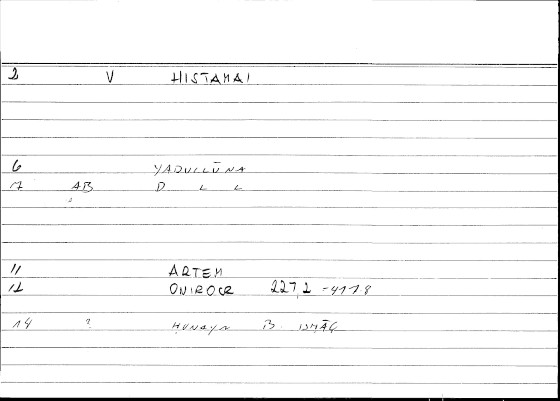 2 V HISTAMAI
6 YADULLŪNA
17 AB D L L
11 ARTEM
12 ONIROCR 227,2 -4118
14 ? HUNAYN B. ISHĀQ